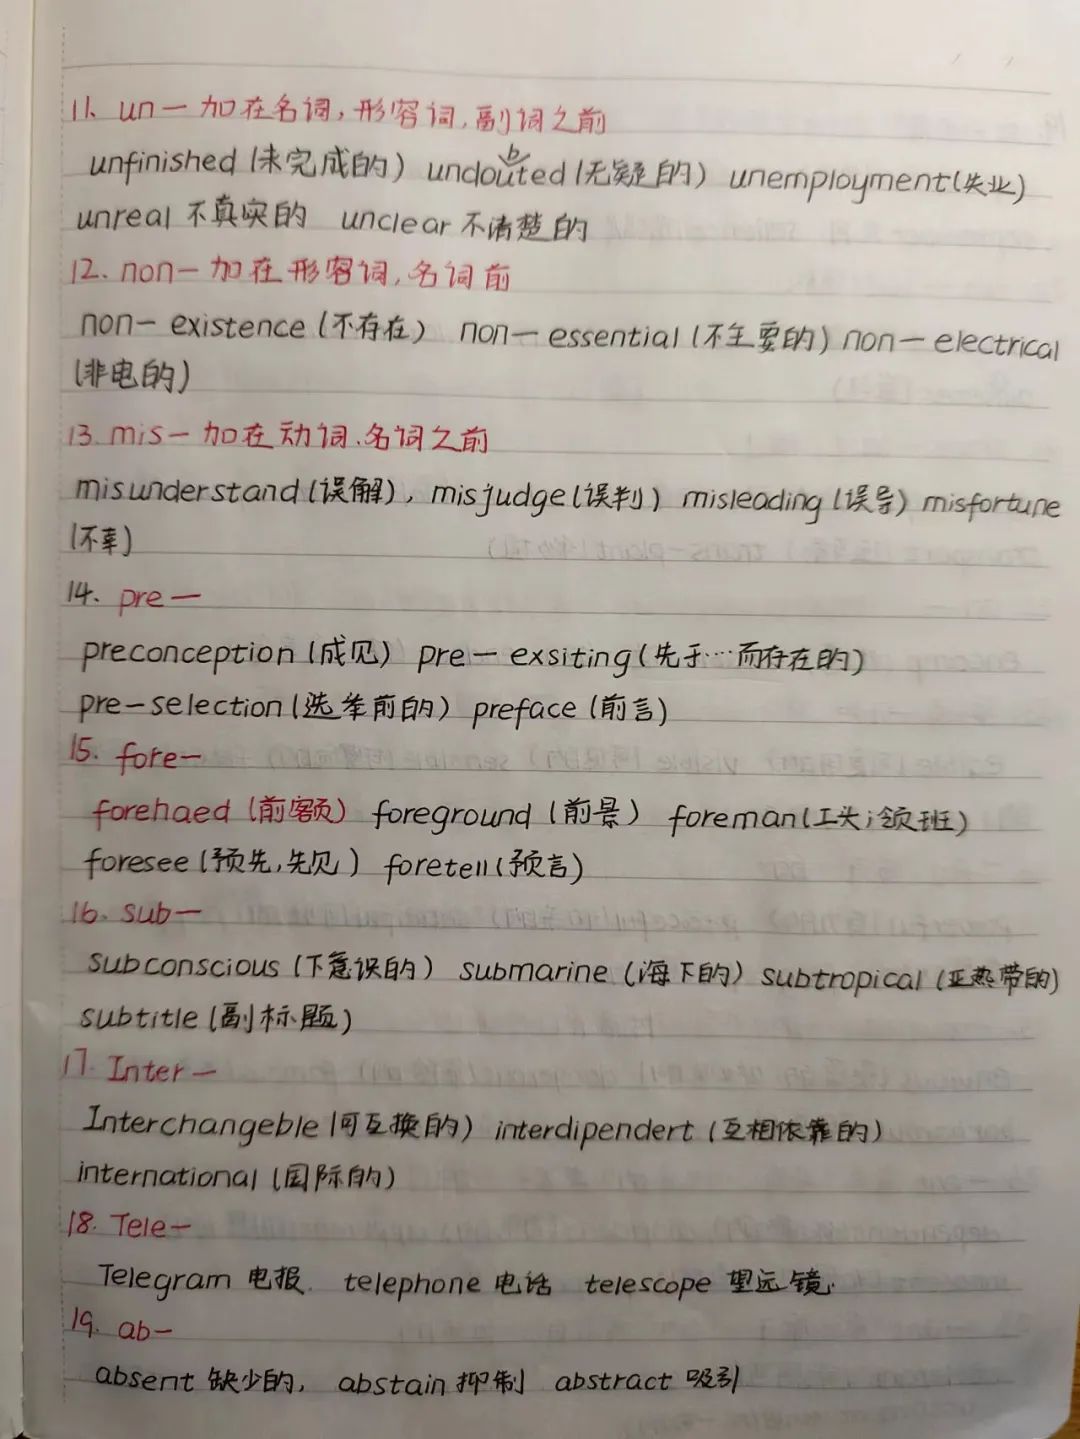 11. un— 加在名词，形容词，副词之前
unfinished (未完成的) undoubted (无疑的) unemployment (失业)
unreal 不真实的 unclear 不清楚的
12. non— 加在形容词，名词前
non— existence (不存在) non— essential (不主要的) non— electrical
(非电的)
13. mis— 加在动词、名词之前
misunderstand (误解)，misjudge (误判) misleading (误导) misfortune
(不幸)
14. pre—
preconception (成见) pre— exsiting (先于…而存在的)
pre-selection (选举前的) preface (前言)
15. fore—
forehaed (前额) foreground (前景) foreman (工头；领班)
foresee (预先，先见) foretell (预言)
16. sub—
subconscious (下意识的) submarine (海下的) subtropical (亚热带的)
subtitle (副标题)
17. Inter—
Interchangeble (可互换的) interdipendert (互相依靠的)
international (国际的)
18. Tele—
Telegram 电报. telephone 电话 telescope 望远镜.
19. ab—
absent 缺少的， abstain 抑制 abstract 吸引